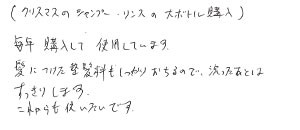 (クリスマスのシャンプー・リンスの大ボトル購入)
毎年購入して使用しています。
髪につけた整髪料もしっかりおちるので、洗ったあとは
すっきりします。
これからも使いたいです。